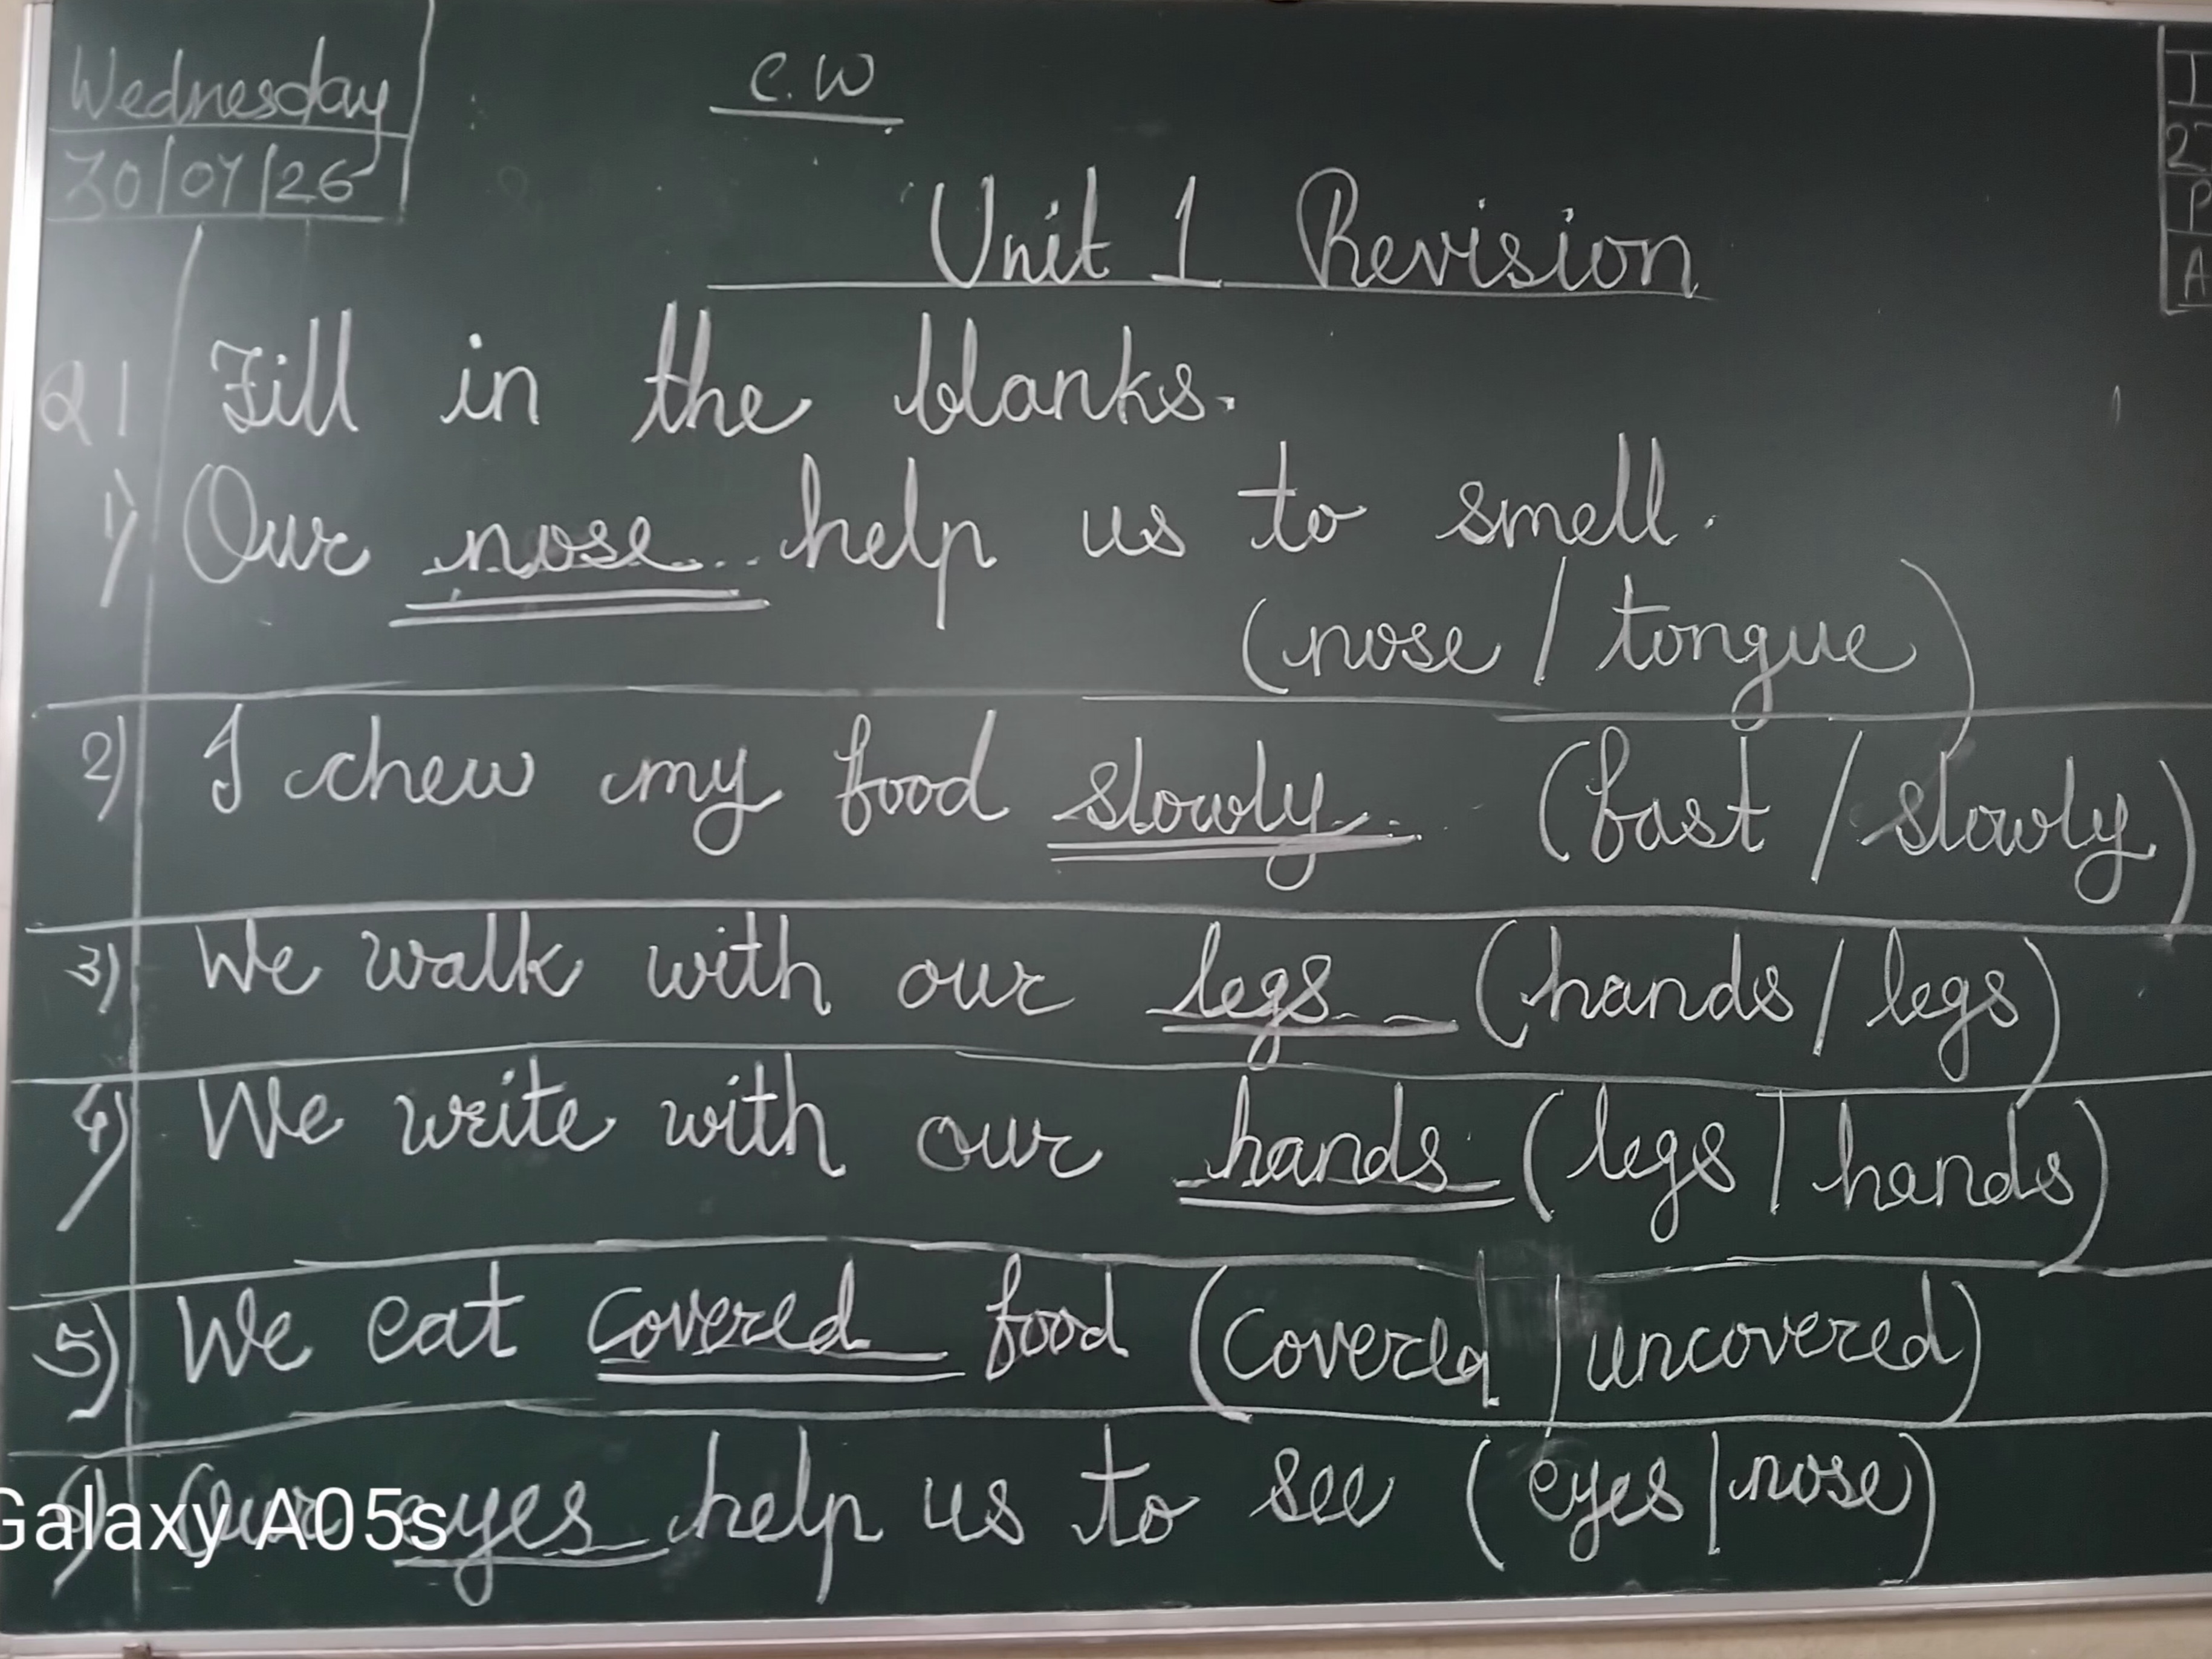 Wednesday
30/07/26
C.W
Unit 1 Revision
Q1 Fill in the blanks.
1) Our nose help us to smell.
(nose / tongue)
2) I chew my food slowly (fast / slowly)
3) We walk with our legs (hands / legs)
4) We write with our hands (legs | hands)
5) We eat covered food (covered | uncovered)
6) Our eyes help us to see (eyes | nose)
Galaxy A05s